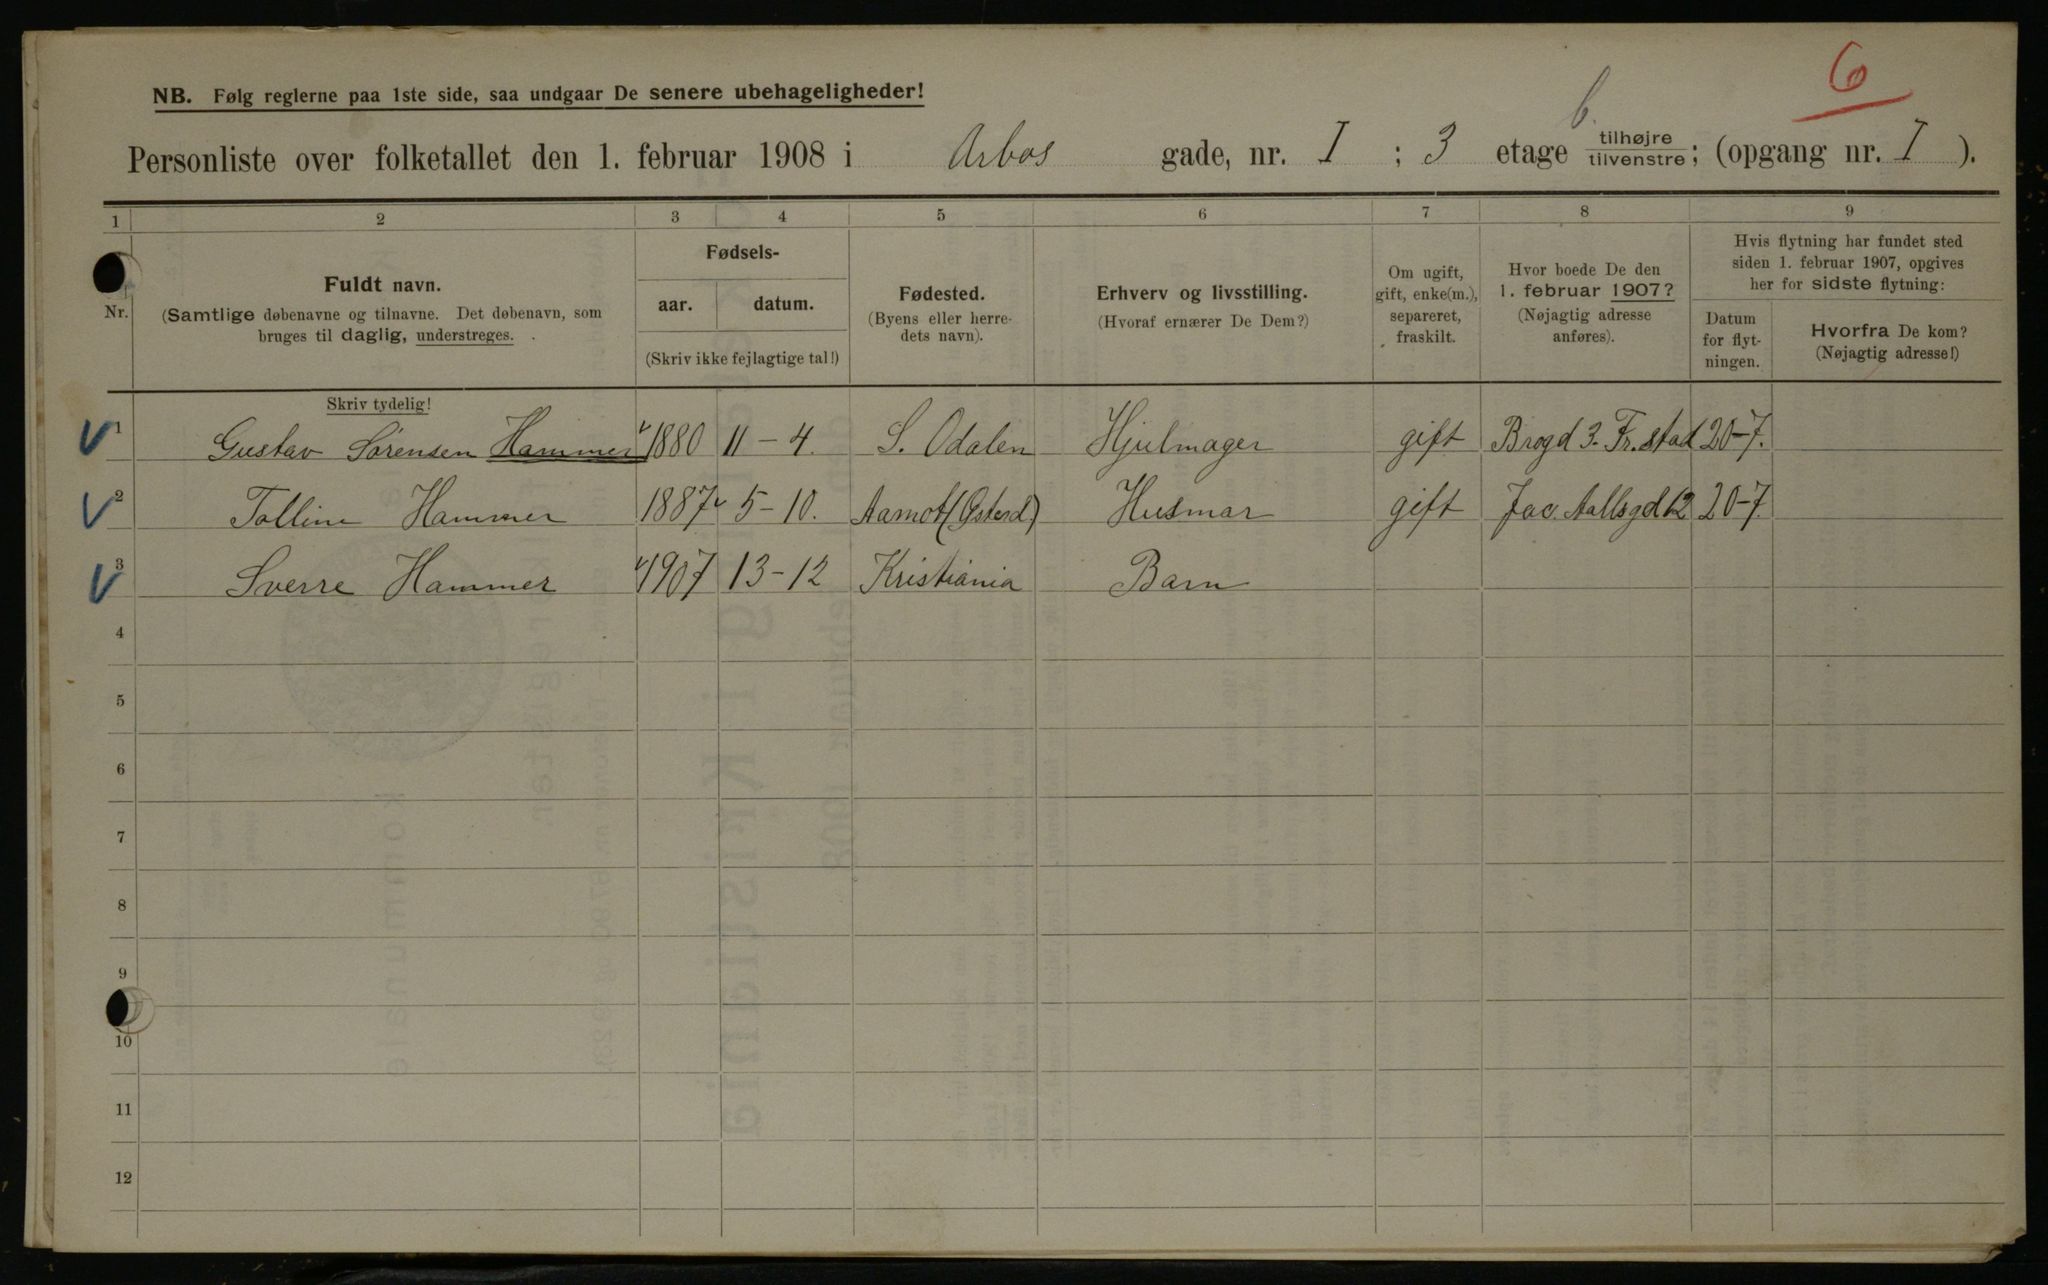 6
NB. Følg reglerne paa 1ste side, saa undgaar De senere ubehageligheder!
Personliste over folketallet den 1. februar 1908 i Arbos gade, nr. I ; 3 etage b. tilhøjre tilvenstre; (opgang nr. I ).
1 2 3 4 5 6 7 8 9
Nr.
Fuldt navn.
(Samtlige døbenavne og tilnavne. Det døbenavn, som
bruges til daglig, understreges.
Fødsels-
aar. datum.
(Skriv ikke fejlagtige tal!)
Fødested.
(Byens eller herre-
dets navn).
Erhverv og livsstilling.
(Hvoraf ernærer De Dem?)
Om ugift,
gift, enke(m.),
separeret,
fraskilt.
Hvor boede De den
1. februar 1907?
(Nøjagtig adresse
anføres).
Hvis flytning har fundet sted
siden 1. februar 1907, opgives
her for sidste flytning:
Datum
for flyt-
ningen.
Hvorfra De kom?
(Nøjagtig adresse!)
Skriv tydelig!
1 Gustav Sørensen Hammer 1880 11-4. S. Odalen Hjulmager gift Brogd 3. Fr.stad 20-7.
2 Tolline Hammer 1887 5-10. Aamot (Østerd) Husmor gift Jac. Aallsgd 12 20-7.
3 Sverre Hammer 1907 13-12 Kristiania Barn
4
5
6
7
8
9
10
11
12